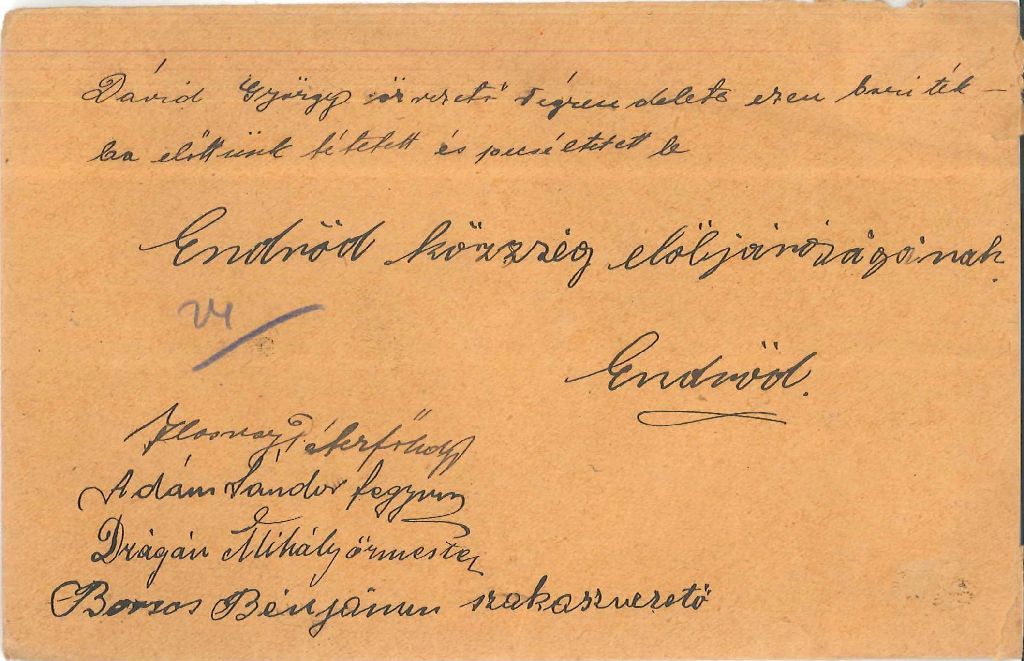 Dávid György őrvezető végrendelete ezen boríték-
ba előttünk tétetett és pecsételtetett le
Endrőd közzség elöljáróságának.
24
Endrőd.
Ilosvay
Adám Sándor
Drágán Mihály őrmester
Borsos Benjámin szakaszvezető